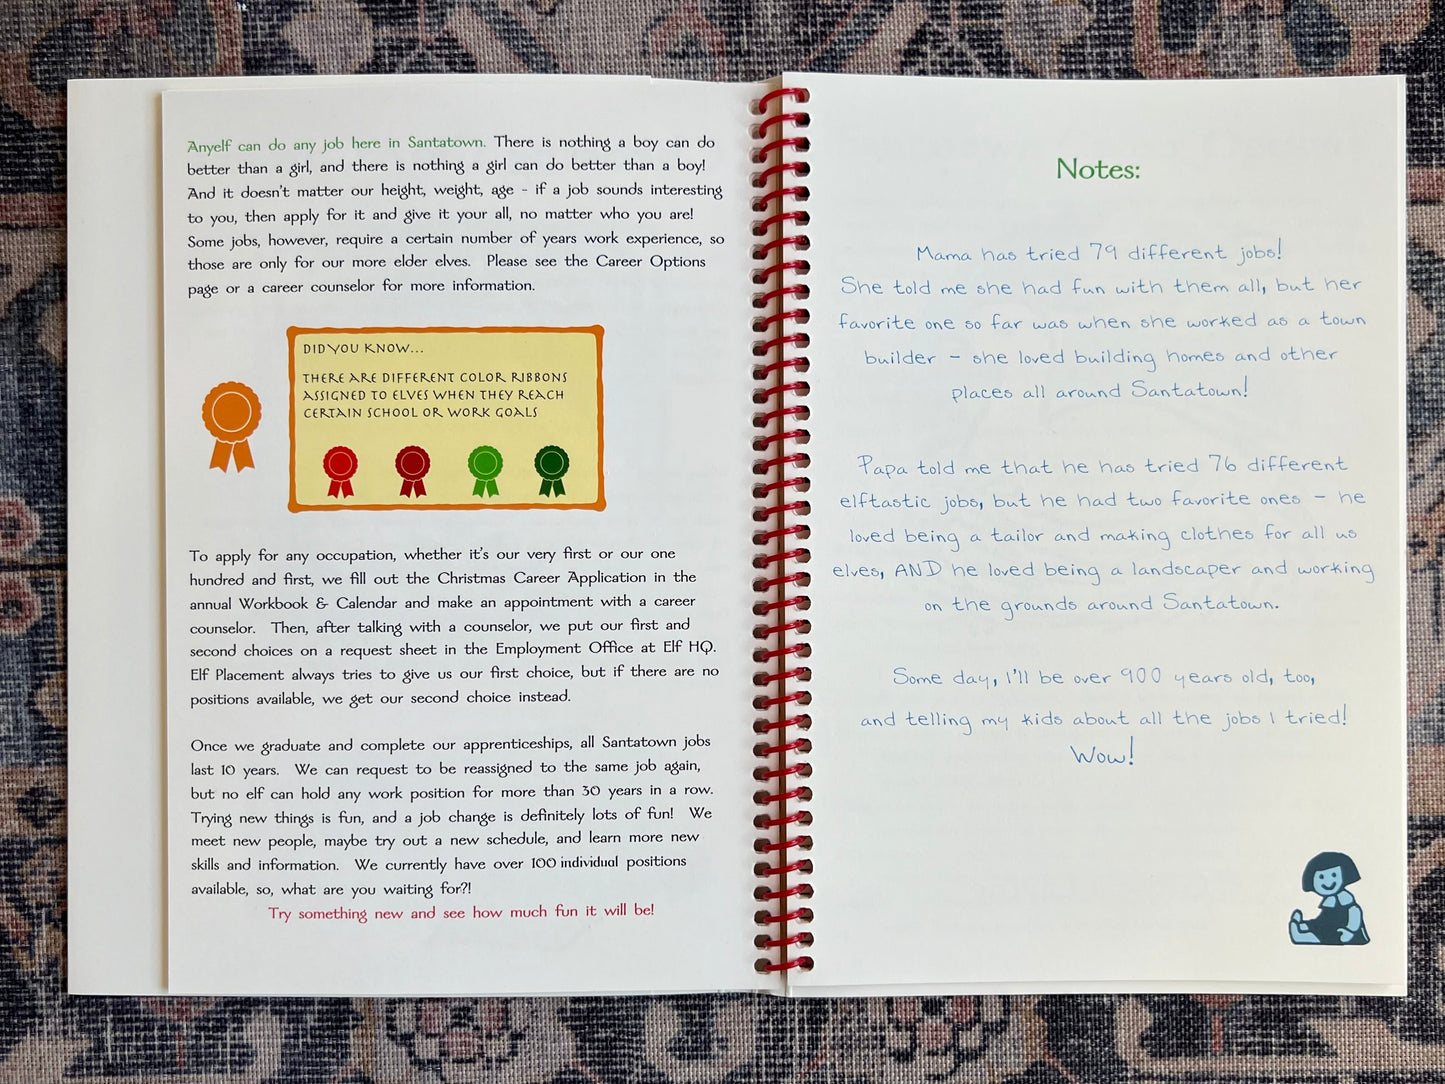 Anyelf can do any job here in Santatown. There is nothing a boy can do
better than a girl, and there is nothing a girl can do better than a boy!
And it doesn't matter our height, weight, age - if a job sounds interesting
to you, then apply for it and give it your all, no matter who you are!
Some jobs, however, require a certain number of years work experience, so
those are only for our more elder elves. Please see the Career Options
page or a career counselor for more information.
DID YOU KNOW...
THERE ARE DIFFERENT COLOR RIBBONS
ASSIGNED TO ELVES WHEN THEY REACH
CERTAIN SCHOOL OR WORK GOALS
To apply for any occupation, whether it's our very first or our one
hundred and first, we fill out the Christmas Career Application in the
annual Workbook & Calendar and make an appointment with a career
counselor. Then, after talking with a counselor, we put our first and
second choices on a request sheet in the Employment Office at Elf HQ.
Elf Placement always tries to give us our first choice, but if there are no
positions available, we get our second choice instead.
Once we graduate and complete our apprenticeships, all Santatown jobs
last 10 years. We can request to be reassigned to the same job again,
but no elf can hold any work position for more than 30 years in a row.
Trying new things is fun, and a job change is definitely lots of fun! We
meet new people, maybe try out a new schedule, and learn more new
skills and information. We currently have over 100 individual positions
available, so, what are you waiting for?!
Try something new and see how much fun it will be!
Notes:
Mama has tried 79 different jobs!
She told me she had fun with them all, but her
favorite one so far was when she worked as a town
builder - she loved building homes and other
places all around Santatown!
Papa told me that he has tried 76 different
elftastic jobs, but he had two favorite ones - he
loved being a tailor and making clothes for all us
elves, AND he loved being a landscaper and working
on the grounds around Santatown.
Some day, I'll be over 900 years old, too,
and telling my kids about all the jobs I tried!
Wow!